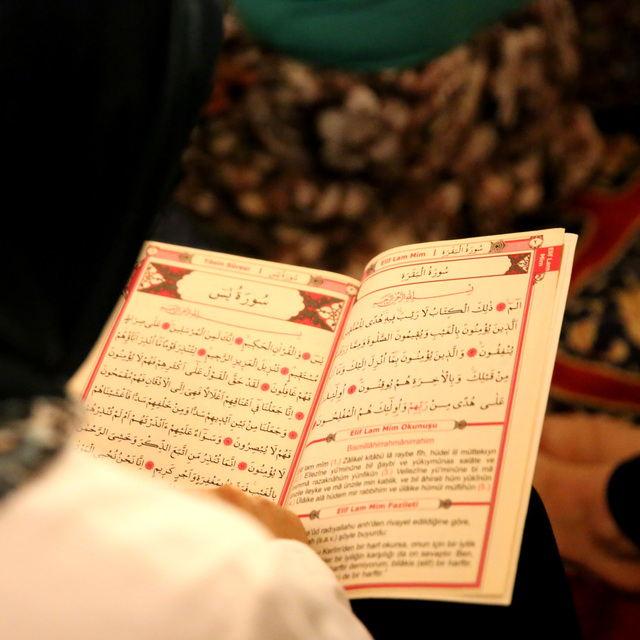 Elif Lam Mim | سُورَةُ الْبَقَرَةِ
Elif Lam Mim
سُورَةُ الْبَقَرَةِ
الٓمٓ ذٰلِكَ الْكِتَابُ لَا رَيْبَ فِيهِ هُدًى لِلْمُتَّقِينَ
اَلَّذِينَ يُؤْمِنُونَ بِالْغَيْبِ وَيُقِيمُونَ الصَّلٰوةَ وَمِمَّا رَزَقْنَاهُمْ
يُنْفِقُونَ وَالَّذِينَ يُؤْمِنُونَ بِمَٓا اُنْزِلَ اِلَيْكَ وَمَٓا اُنْزِلَ
مِنْ قَبْلِكَ وَبِالْاٰخِرَةِ هُمْ يُوقِنُونَ اُولٰٓئِكَ
عَلٰى هُدًى مِنْ رَبِّهِمْ وَاُولٰٓئِكَ هُمُ الْمُفْلِحُونَ
Elif Lam Mim Okunuşu
Bismillâhirrahmânirrahîm
lam mîm (1.) Zâlikel kitâbü lâ raybe fîh, hüdel lil müttekıyn
Ellezîne yü'minûne bil ğaybi ve yükıymûnas salâte ve
mimmâ razaknâhüm yünfikûn (3.) Vellezîne yü'minûne bi mâ
ünzile ileyke ve mâ ünzile min kablik, ve bil âhirati hüm yûkînûn
Ülâike alâ hüdem mir rabbihim ve ülâike hümül müflihûn (5.)
Elif Lam Mim Fazileti
radıyallahu anh'den rivayet edildiğine göre,
(s.a.v.) şöyle buyurdu:
Kur'ân'dan bir harf okursa, onun için bir iyilik
Her iyiliğin karşılığı da on sevaptır. Ben,
harftir demiyorum, bilakis (elif) bir harftir,
de bir harftir.
Yâsin Sûresi | سُورَةُ يٰسٓ
سُورَةُ يٰسٓ
يٰسٓ وَالْقُرْاٰنِ الْحَكِيمِ اِنَّكَ لَمِنَ الْمُرْسَلِينَ عَلٰى صِرَاطٍ
مُسْتَقِيمٍ تَنْزِيلَ الْعَزِيزِ الرَّحِيمِ لِتُنْذِرَ قَوْمًا مَٓا اُنْذِرَ اٰبَٓاؤُهُمْ
فَهُمْ غَافِلُونَ لَقَدْ حَقَّ الْقَوْلُ عَلٰٓى اَكْثَرِهِمْ فَهُمْ لَا يُؤْمِنُونَ
اِنَّا جَعَلْنَا فِٓي اَعْنَاقِهِمْ اَغْلَالًا فَهِيَ اِلَى الْاَذْقَانِ فَهُمْ مُقْمَحُونَ
وَجَعَلْنَا مِنْ بَيْنِ اَيْدِيهِمْ سَدًّا وَمِنْ خَلْفِهِمْ سَدًّا فَاَغْشَيْنَاهُمْ
فَهُمْ لَا يُبْصِرُونَ وَسَوَٓاءٌ عَلَيْهِمْ ءَاَنْذَرْتَهُمْ اَمْ لَمْ تُنْذِرْهُمْ
لَا يُؤْمِنُونَ اِنَّمَا تُنْذِرُ مَنِ اتَّبَعَ الذِّكْرَ وَخَشِيَ الرَّحْمٰنَ
بِالْغَيْبِ فَبَشِّرْهُ بِمَغْفِرَةٍ وَاَجْرٍ كَرِيمٍ اِنَّا نَحْنُ نُحْيِ